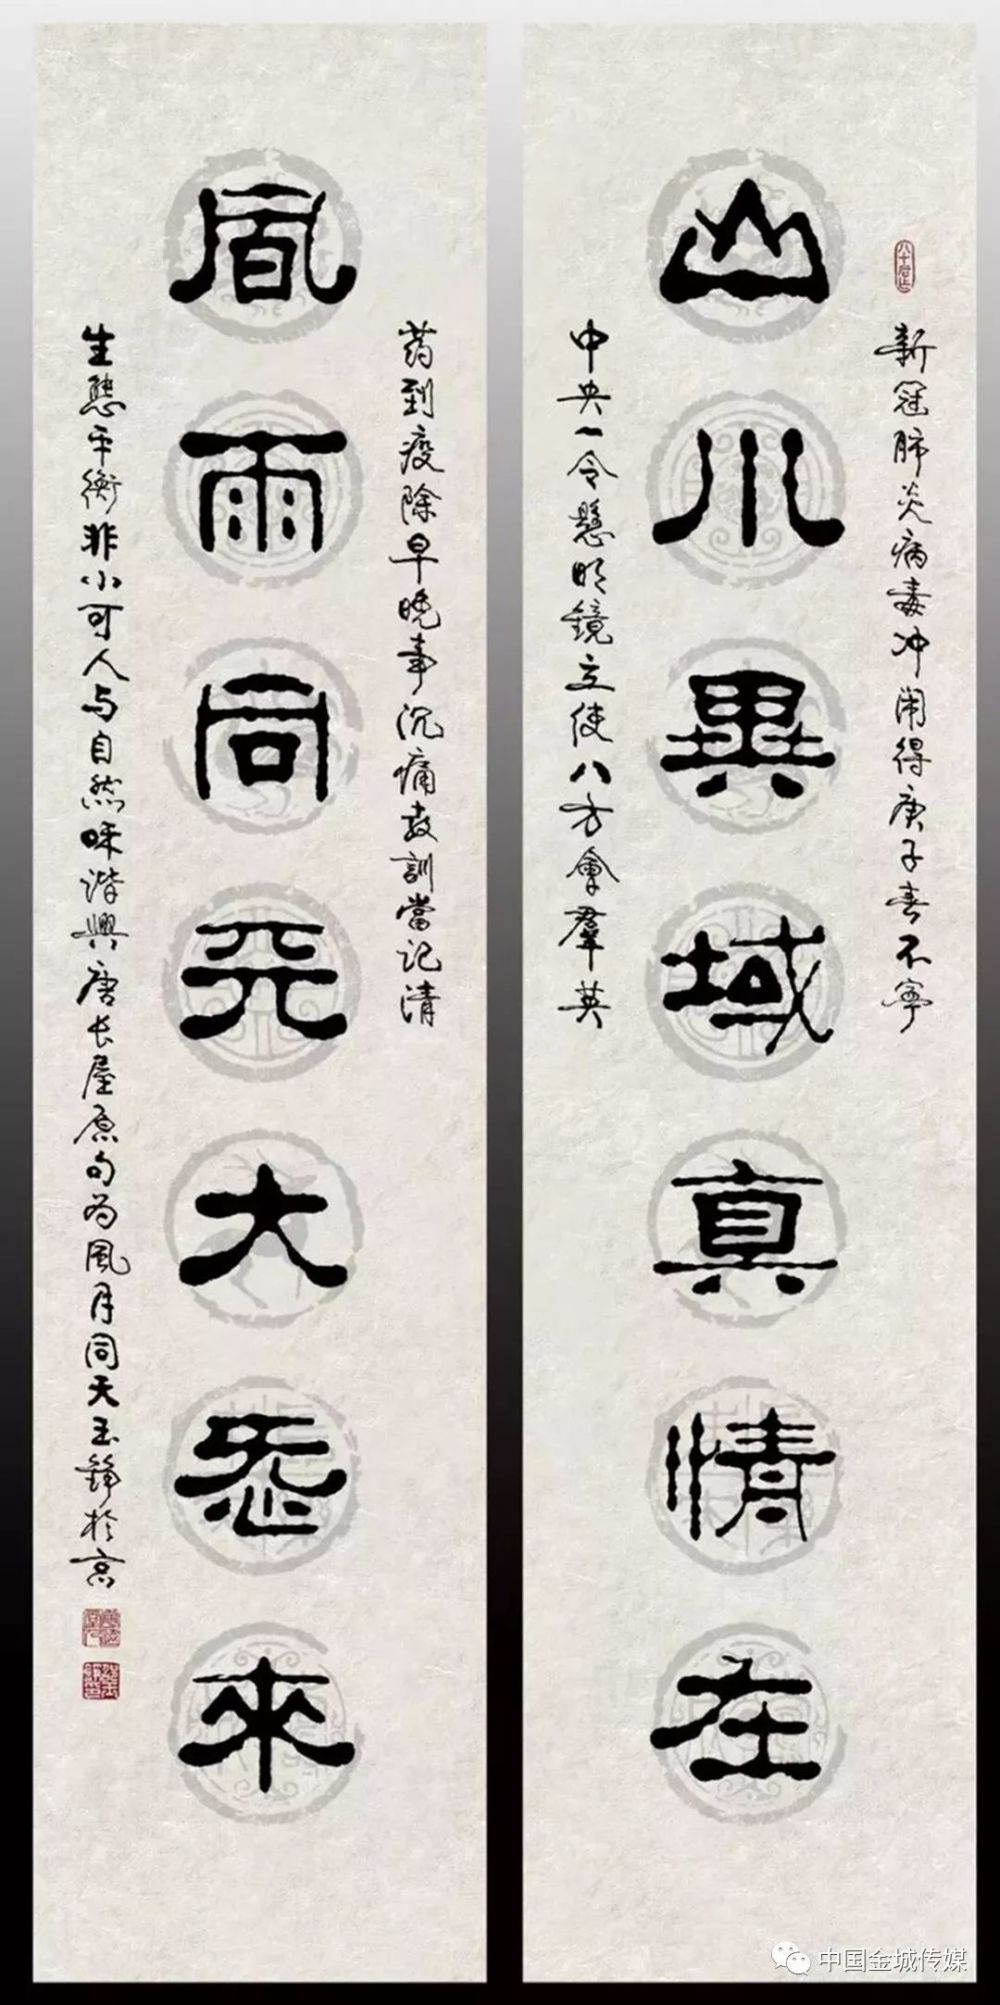 新冠肺炎病毒冲闹得庚子春不寧
山川異域真情在
中央一令懸明鏡立使八方會羣英
药到疫除早晚事沉痛教訓當记清
風雨同天大愛來
生態平衡非小可人与自然和谐興唐长屋原句为風月同天玉錚於京
中国金城传媒